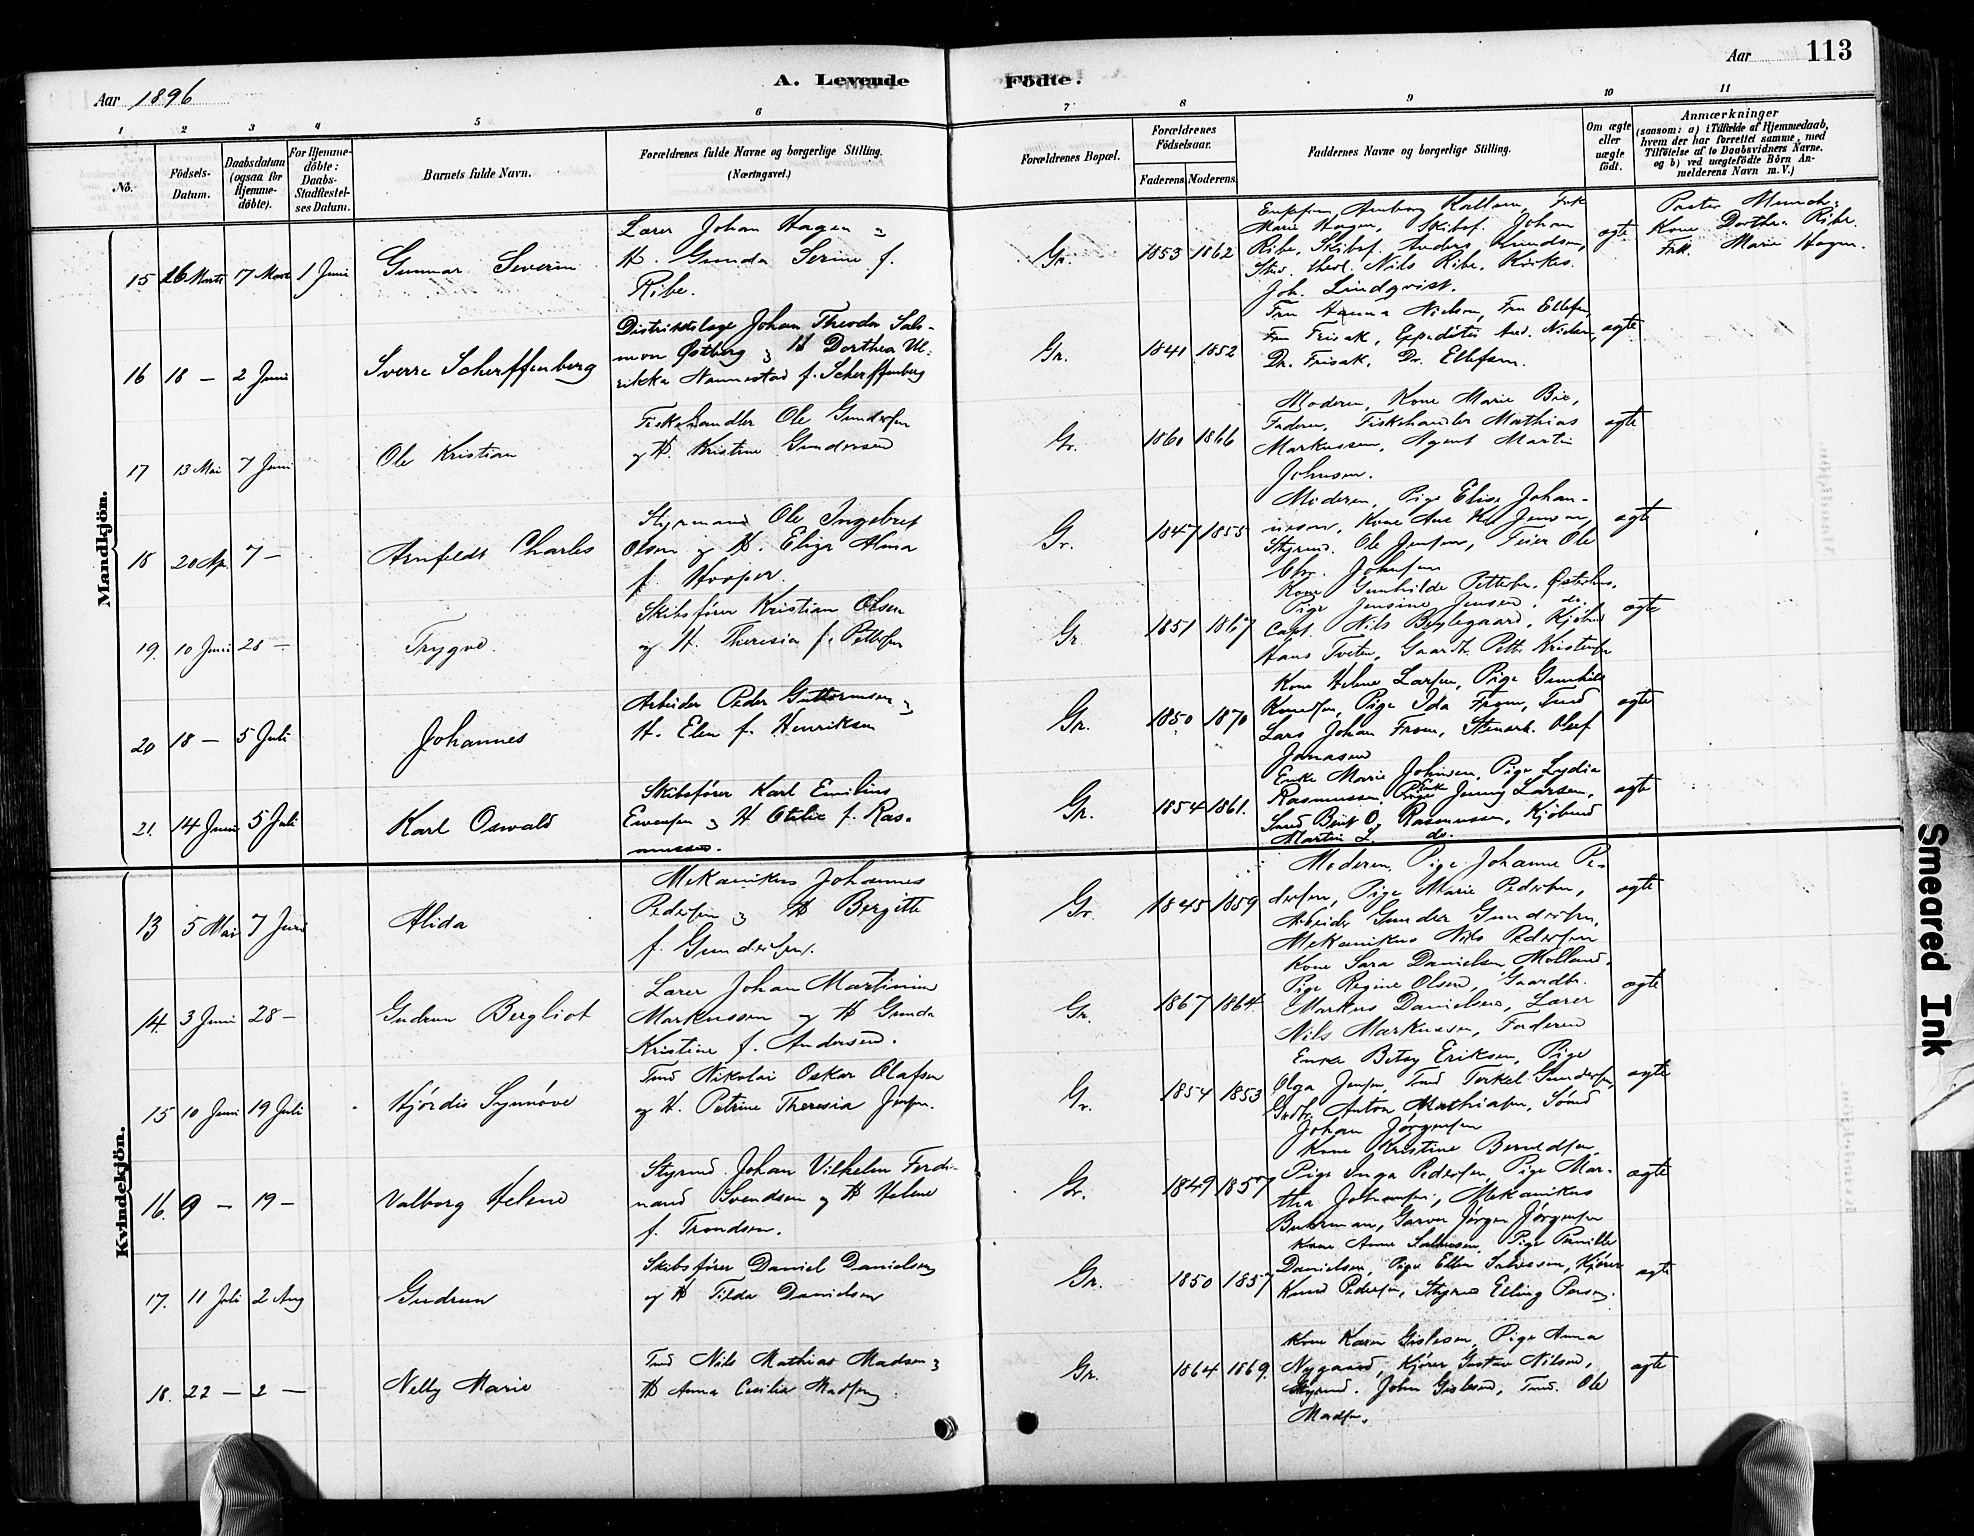 Aar 1896
A. Levende
Födte.
Aar
113
1 2 3 4 5 6 7 8 9 10 11
No.
Födsels-
Datum.
Daabsdatum
(ogsaa for
Hjemme-
döbte).
For Hjemme-
döbte:
Daabs-
Stadfæstel-
ses Datum.
Barnets fulde Navn.
Forældrenes fulde Navne og borgerlige Stilling.
(Næringsvei.)
Forældrenes Bopæl.
Forældrenes
Födselsaar.
Faderens. Moderens.
Faddernes Navne og borgerlige Stilling.
Om ægte
eller
uægte
födt.
Anmærkninger
(saasom: a) i Tilfælde af Hjemmedaab,
hvem der har forrettet samme, med
Tilföielse af to Daabsvidners Navne.
og b) ved uægtefödte Börn An-
melderens Navn m. V.)
Mandkjön.
15 26 Marts 7 1 Juni
Gunnar Severin
Lærer Johan Hagen og
H. Gunda Serine f.
Ribe.
Gr. 1853 1862
Marie Hagen, Skibsf. Johan
Ribe, Skibsf. Anders Knudsen,
Stud. theol. Nils Ribe,
Joh. Lindqvist.
ægte
Pastor Munch:
Kone Dorthea Ribe
Frk. Marie Hagen.
16 18 – 2 Juni
Sverre Scherffenberg
Distriktslæge Johan Theodor Salo-
mon Østberg og H Dorthea Ul-
rikka Nannestad f. Scherffenberg
Gr. 1841 1852
Fru Hanna Nielsen, Fru Ellefsen,
Fru Frisak, Expeditør And. Nielsen,
Dr. Frisak, Dr. Ellefsen.
ægte
17 13 Mai 7 Juni
Ole Kristian
Fiskehandler Ole Gundersen
og H. Kristine Gundersen
Gr. 1860 1866
Moderen, Kone Marie Bie,
Faderen, Fiskehandler Mathias
Markussen, Agent Martin
Johnsen.
ægte
18 20 Ap. 7 –
Arnfeldt Charles
Styrmand Ole Ingebret
Olsen og H. Eliza Alma
f. Hooper.
Gr. 1847 1855
Moderen, Pige Elise Johan-
nesen, Kone Ane Jensen,
Styrmd. Ole Jensen, Ole
Chr. Johnsen
ægte
19. 10 Juni 28 –
Trygve
Skibsfører Kristian Olsen
og H. Theresia f. Pettersen
Gr. 1851 1867
Kone Gunhilde Pettersen, Østerhus,
Pige Jensine Jensen, do.
Capt. Nils Bøylegaard, Kjøbmd
Hans Tveten, Gaardb. Pett. Kristensen
ægte
20 18 – 5 Juli
Johannes
Arbeider Peder Guttormsen og
H. Elen f. Henriksen
Gr. 1850 1870
Kone Helene Larsen, Pige Gunhild
Knudsen, Pige Ida From, Tmd
Lars Johan From, Stenarb. Oluf
Jonasen
ægte
21. 14 Juni 5 Juli
Karl Oswald
Skibsfører Karl Emilius
Evensen og H Otilie f. Ras-
mussen.
Gr. 1854 1861.
Enke Marie Johnsen, Pige Lydia
Rasmussen, Enke Jenny Larsen,
Smed Bent O. Rasmussen, Kjøbmd
Martin L. do.
ægte
Kvindekjön.
13 5 Mai 7 Juni
Alida
Mekanikus Johannes
Pedersen og H Bergitte
f. Gundersen.
Gr. 1845 1859
Moderen, Pige Johanne Pe-
dersen, Pige Marie Pedersen,
Arbeider Gunder Gundersen,
Mekanikus Nils Pedersen
ægte
14. 3 Juni 28 –
Gudrun Bergliot
Lærer Johan Martinius
Markussen og H Gunda
Kristine f. Andersen.
Gr. 1867 1864.
Kone Sara Danielsen Molland,
Pige Regine Olsen, Gaardbr.
Markus Danielsen, Lærer
Nils Markussen, Faderen
ægte
15 10 Juni 19 Juli
Hjordis Synnøve
Tmd Nikolai Oskar Olafsen
og H. Petrine Theresia Jensen.
Gr. 1854 1853
Enke Betsy Eriksen, Pige
Olga Jensen, Tmd Terkel Gundersen,
Gadbr. Anton Mathiasen, Sømd
Johan Jørgensen
ægte
16. 9 – 19 –
Valborg Helene
Styrmd. Johan Vilhelm Ferdi-
nand Svendsen og H Helene
f. Trondsen.
Gr. 1849 1857
Kone Kristine Berntsen,
Pige Inga Pedersen, Pige Mar-
tha Johansen, Mekanikus
Buhrman, Garver Jørgen Jørgensen
ægte
17. 11 Juli 2 Aug
Gudrun
Skibsfører Daniel Danielsen
og H Tilda Danielsen
Gr. 1850 1857
Kone Anne Salvesen, Pige Pernille
Danielsen, Pige Ellen Salvesen, Kjører
Knud Pedersen, Styrmd Elling
ægte
18. 22 – 2 –
Nelly Marie
Tmd Nils Mathias Madsen og
H Anna Cecilia Madsen
Gr. 1864 1869.
Kone Karen Gislesen, Pige Anna
Nygaard, Kjører Gustav Nilsen,
Styrmd. John Gislesen, Tmd. Ole
Madsen.
ægte
Smeared Ink